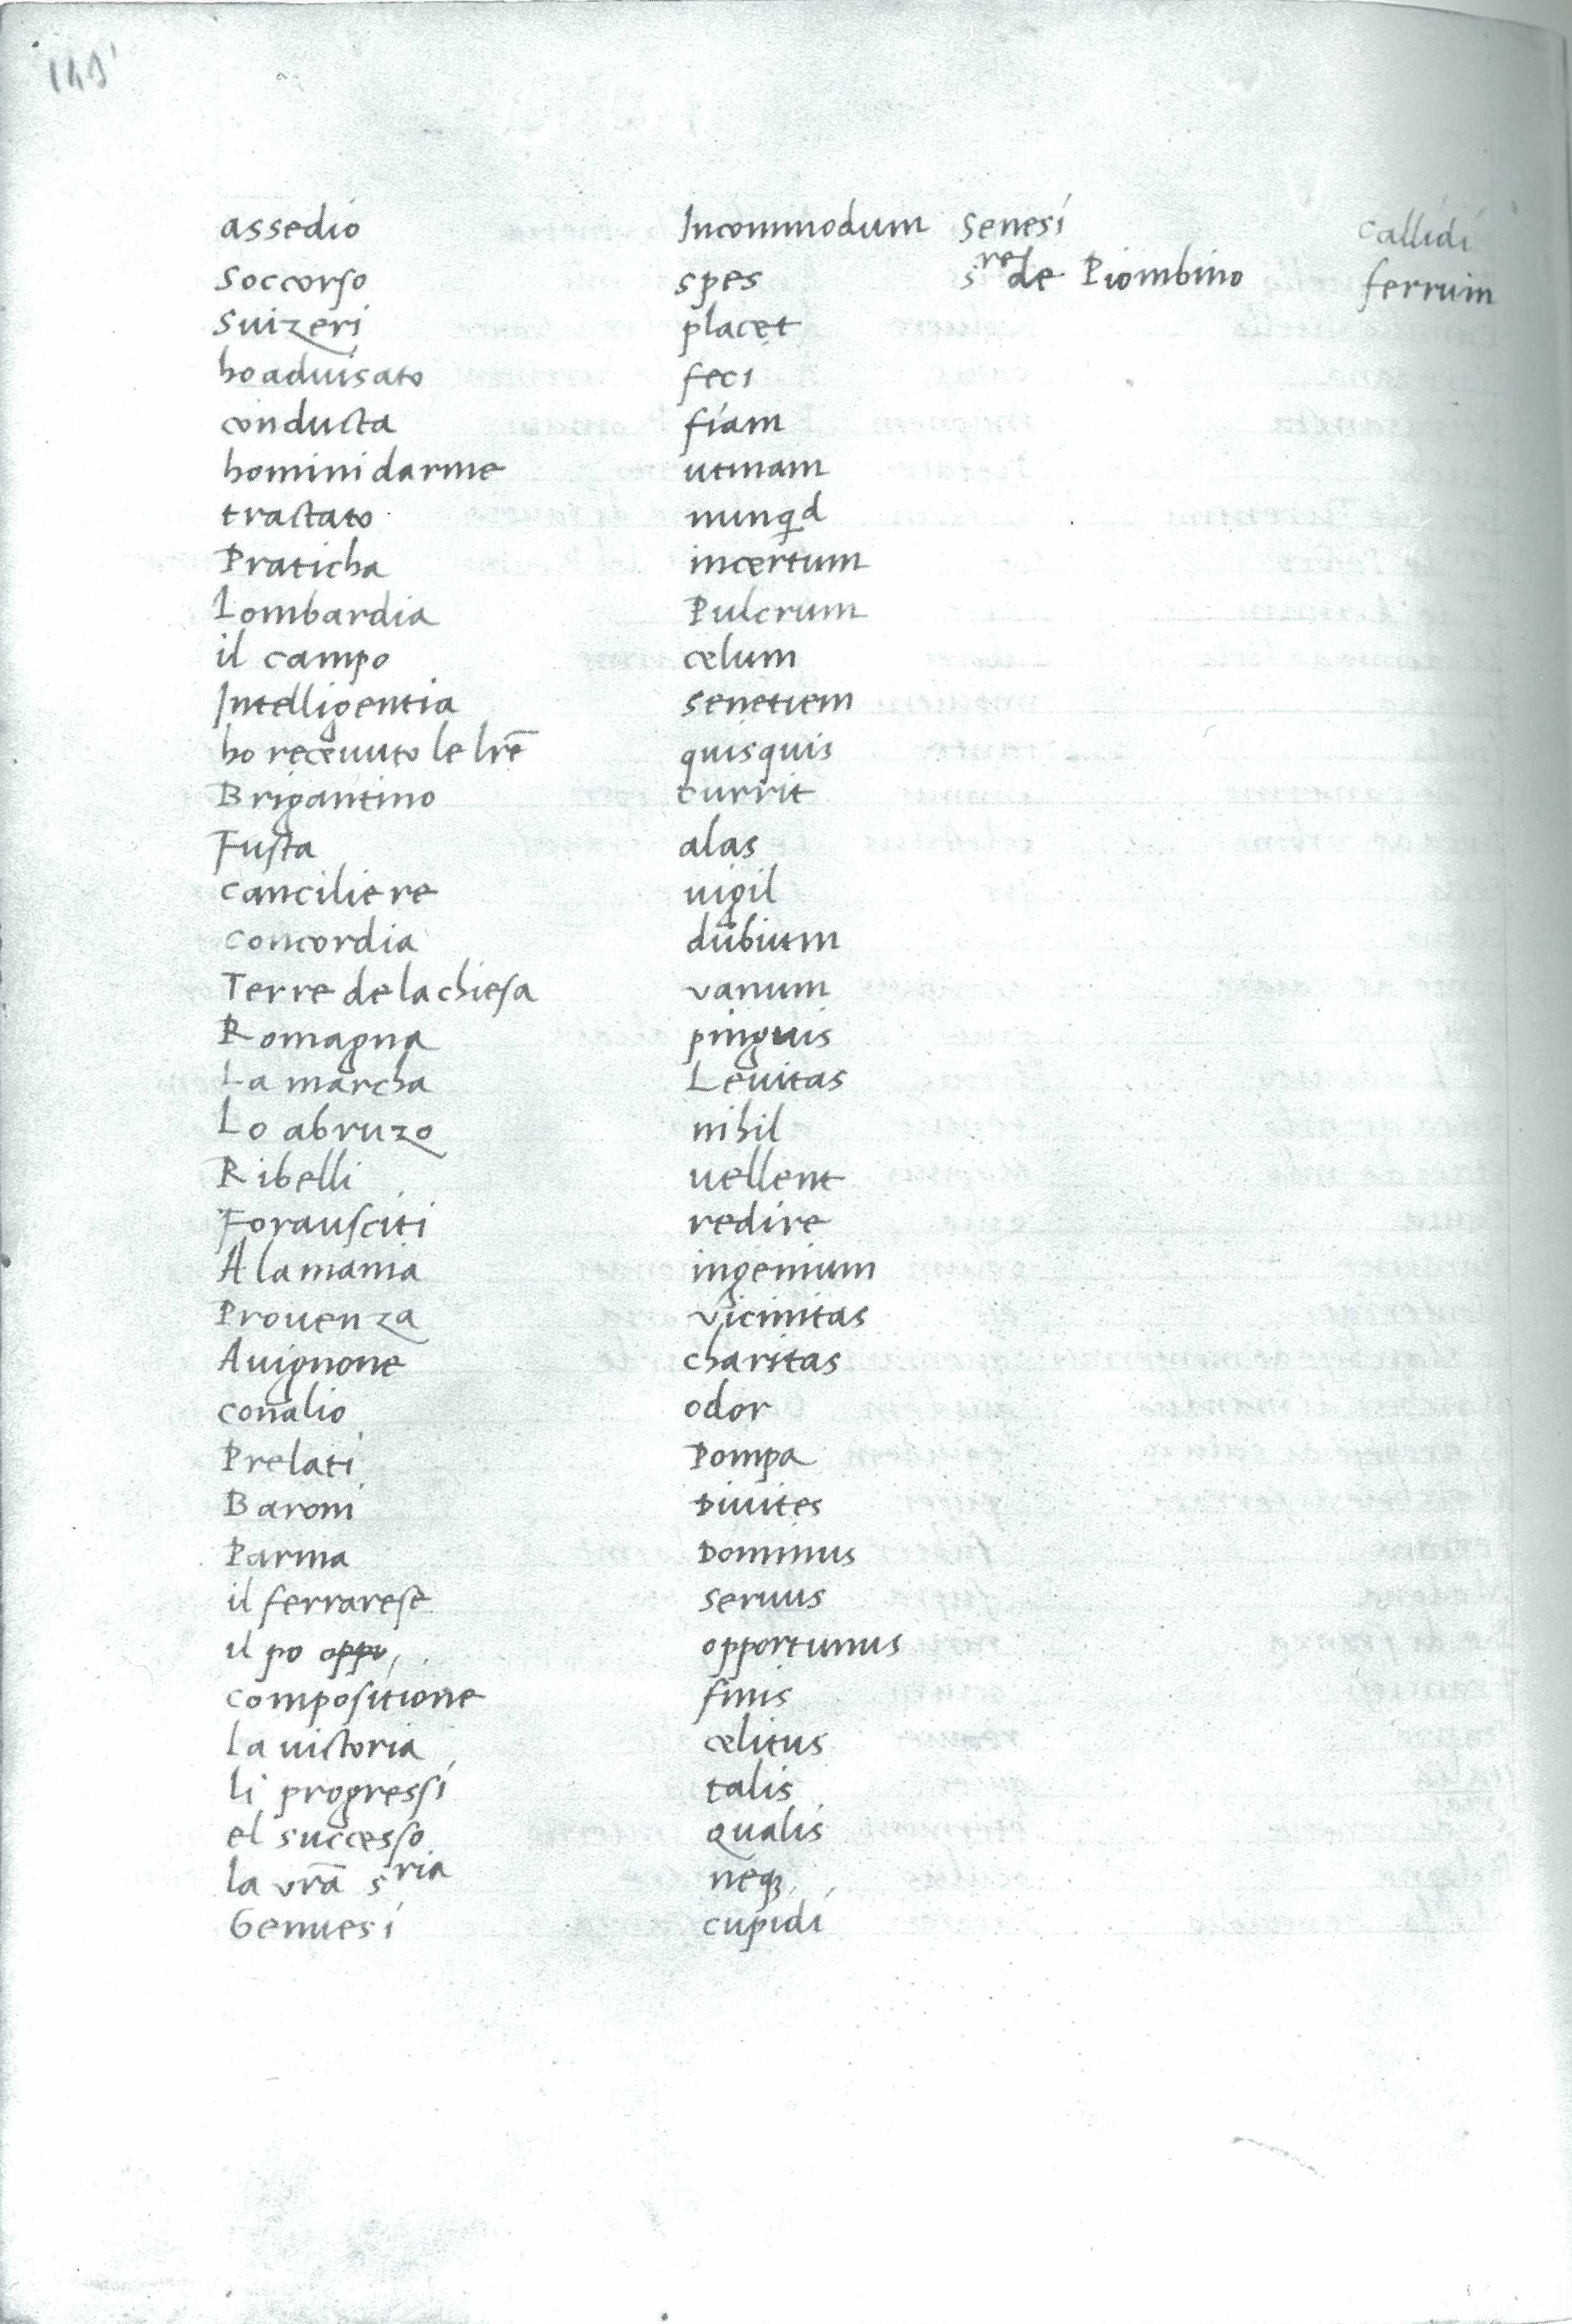 149'
assedio Incommodum Senesi callidi
Soccorso spes s^re de Piombino ferrum
Suizeri placet
ho aduisato feci
conducta fiam
homini darme utinam
tractato nunqd
Praticha incertum
Lombardia Pulcrum
il campo celum
Intelligentia senetiem
ho receuuto le lrē quisquis
Brigantino currit
Fusta alas
canciliere uigil
concordia dubium
Terre de la chiesa vanum
Romagna pinguis
La marcha Leuitas
Lo abruzo nihil
Ribelli uellent
Forausciti redire
Alamania ingenium
Prouenza vicinitas
Auignone charitas
conalio odor
Prelati Pompa
Baroni Diuites
Parma Dominus
il ferrarese seruus
il po oppo opportunus
compositione finis
La uictoria celitus
li progressi talis
el successo qualis
la vrā s^ria neqз
Genuesi cupidi